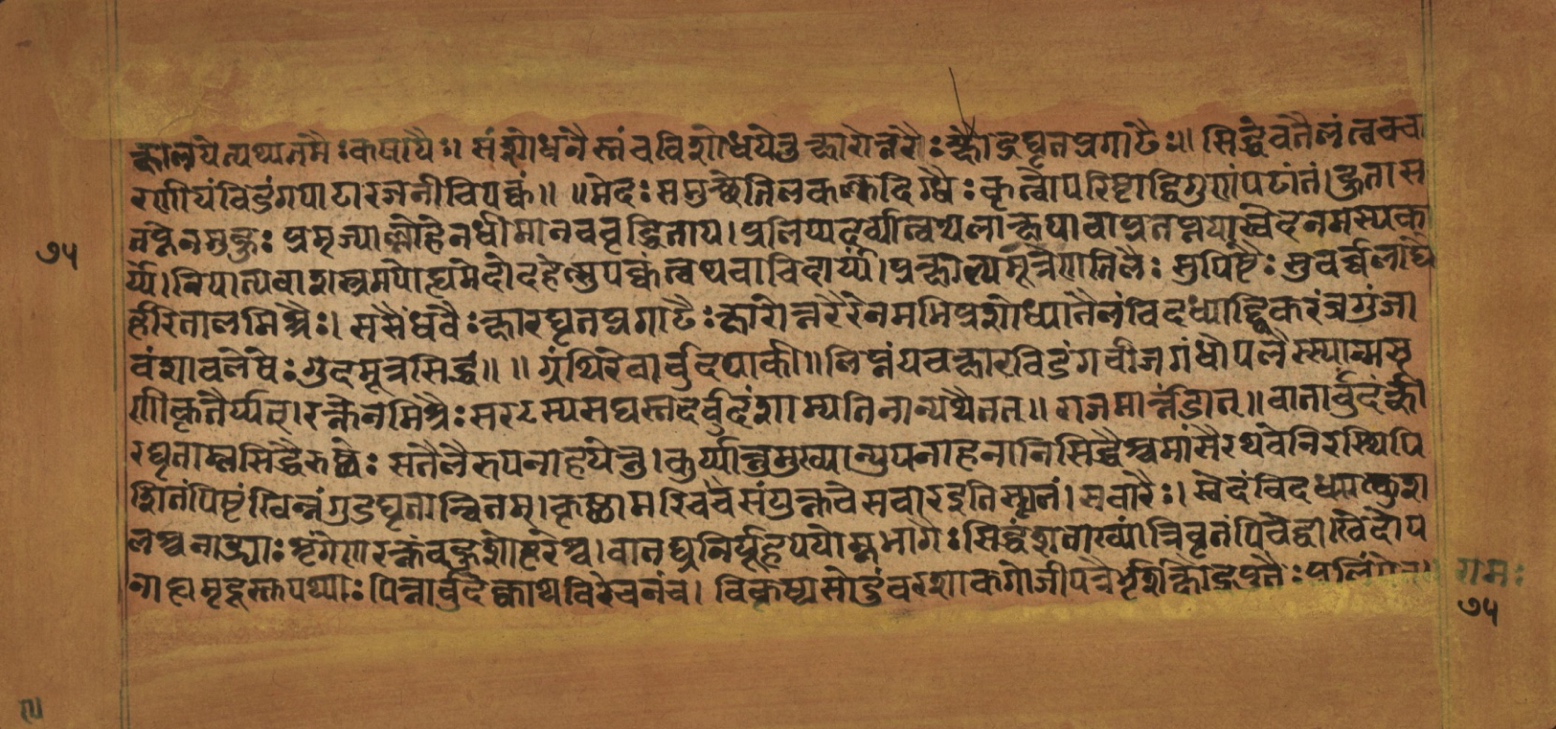 क्षालयेत्पथ्यतमैः कषायैः। संशोधनैस्तं च विशोधयेत्तु क्षारोत्तरैः क्षौद्रघृतप्रगाढैः॥ सिद्धं च तैलं त्वथ चा
रणीयं विडंगपाठारजनीविपक्वं॥ ॥मेदः समुच्छेतिलकल्कदिग्धैः कृत्वोपरिष्टाद्विगुणं पटांतं। हुतास
तप्तेन मुहुः प्रमृज्याल्लोहेन धीमानववृद्धिताय। प्रलिप्य दर्व्या त्वथ लाक्षया वा प्रतप्तया स्वेदनमस्य का
र्यं। निपात्य वा शस्त्रमपोह्य मेदो दहेत्सुपक्वं त्वथवा विदार्य्य। प्रक्षाल्य मूत्रेण तिलैः सुपिष्टैः सुवर्च्चलाद्यै
र्हरितालमिश्रैः। ससैंधवैः क्षारघृतप्रगाढैः क्षारोत्तरैरेनमभिप्रशोध्य तैलं विदध्याद्द्विकरंजगुंजा
वंशावलेषेः गुदमूत्रसिद्धं॥ ॥ ग्रंथिरेवार्वुदपाकी॥ लिप्तं यवक्षारविडंगवीजगंधोपलैस्स्यान्मसृ
णीकृतैर्य्यत्। रक्तेन मिश्रैः सरटस्य सद्यस्तदर्वुदं शाम्यति नान्यथैतत्॥ राजमार्त्तंडात्॥ वातार्वुदं क्षी
रघृताम्लसिद्धैरुष्णैः सतैलैरुपनाहयेत्तु। कुर्य्यान्तु मुख्यान्युपनाहनानि सिद्धैश्च मांसैरथ वेनिरस्थिपि
शितं पिष्टं स्विन्नं गुडघृतान्वितम्। कृष्णामरिचसंयुक्तं वेसवार इति स्मृतं। सवारैः। स्वेदं विदध्यात्कुश
लश्च नाड्याः शृंगेण रक्तं वहुशो हरेच्च। वातघ्ननिर्यूहपयोम्लभागैः सिद्धं शताख्यं त्रिवृतं पिवेद्वा। स्वेदोप
नाहा मृदुस्तपथ्याः पित्तार्वुदे क्वाथविरेचनंच। विकृष्य सोडुंवरशाकगोजीपत्रैर्भृशं क्षौद्रयुतैः प्रलिंपेत्।
७५
रामः
७५